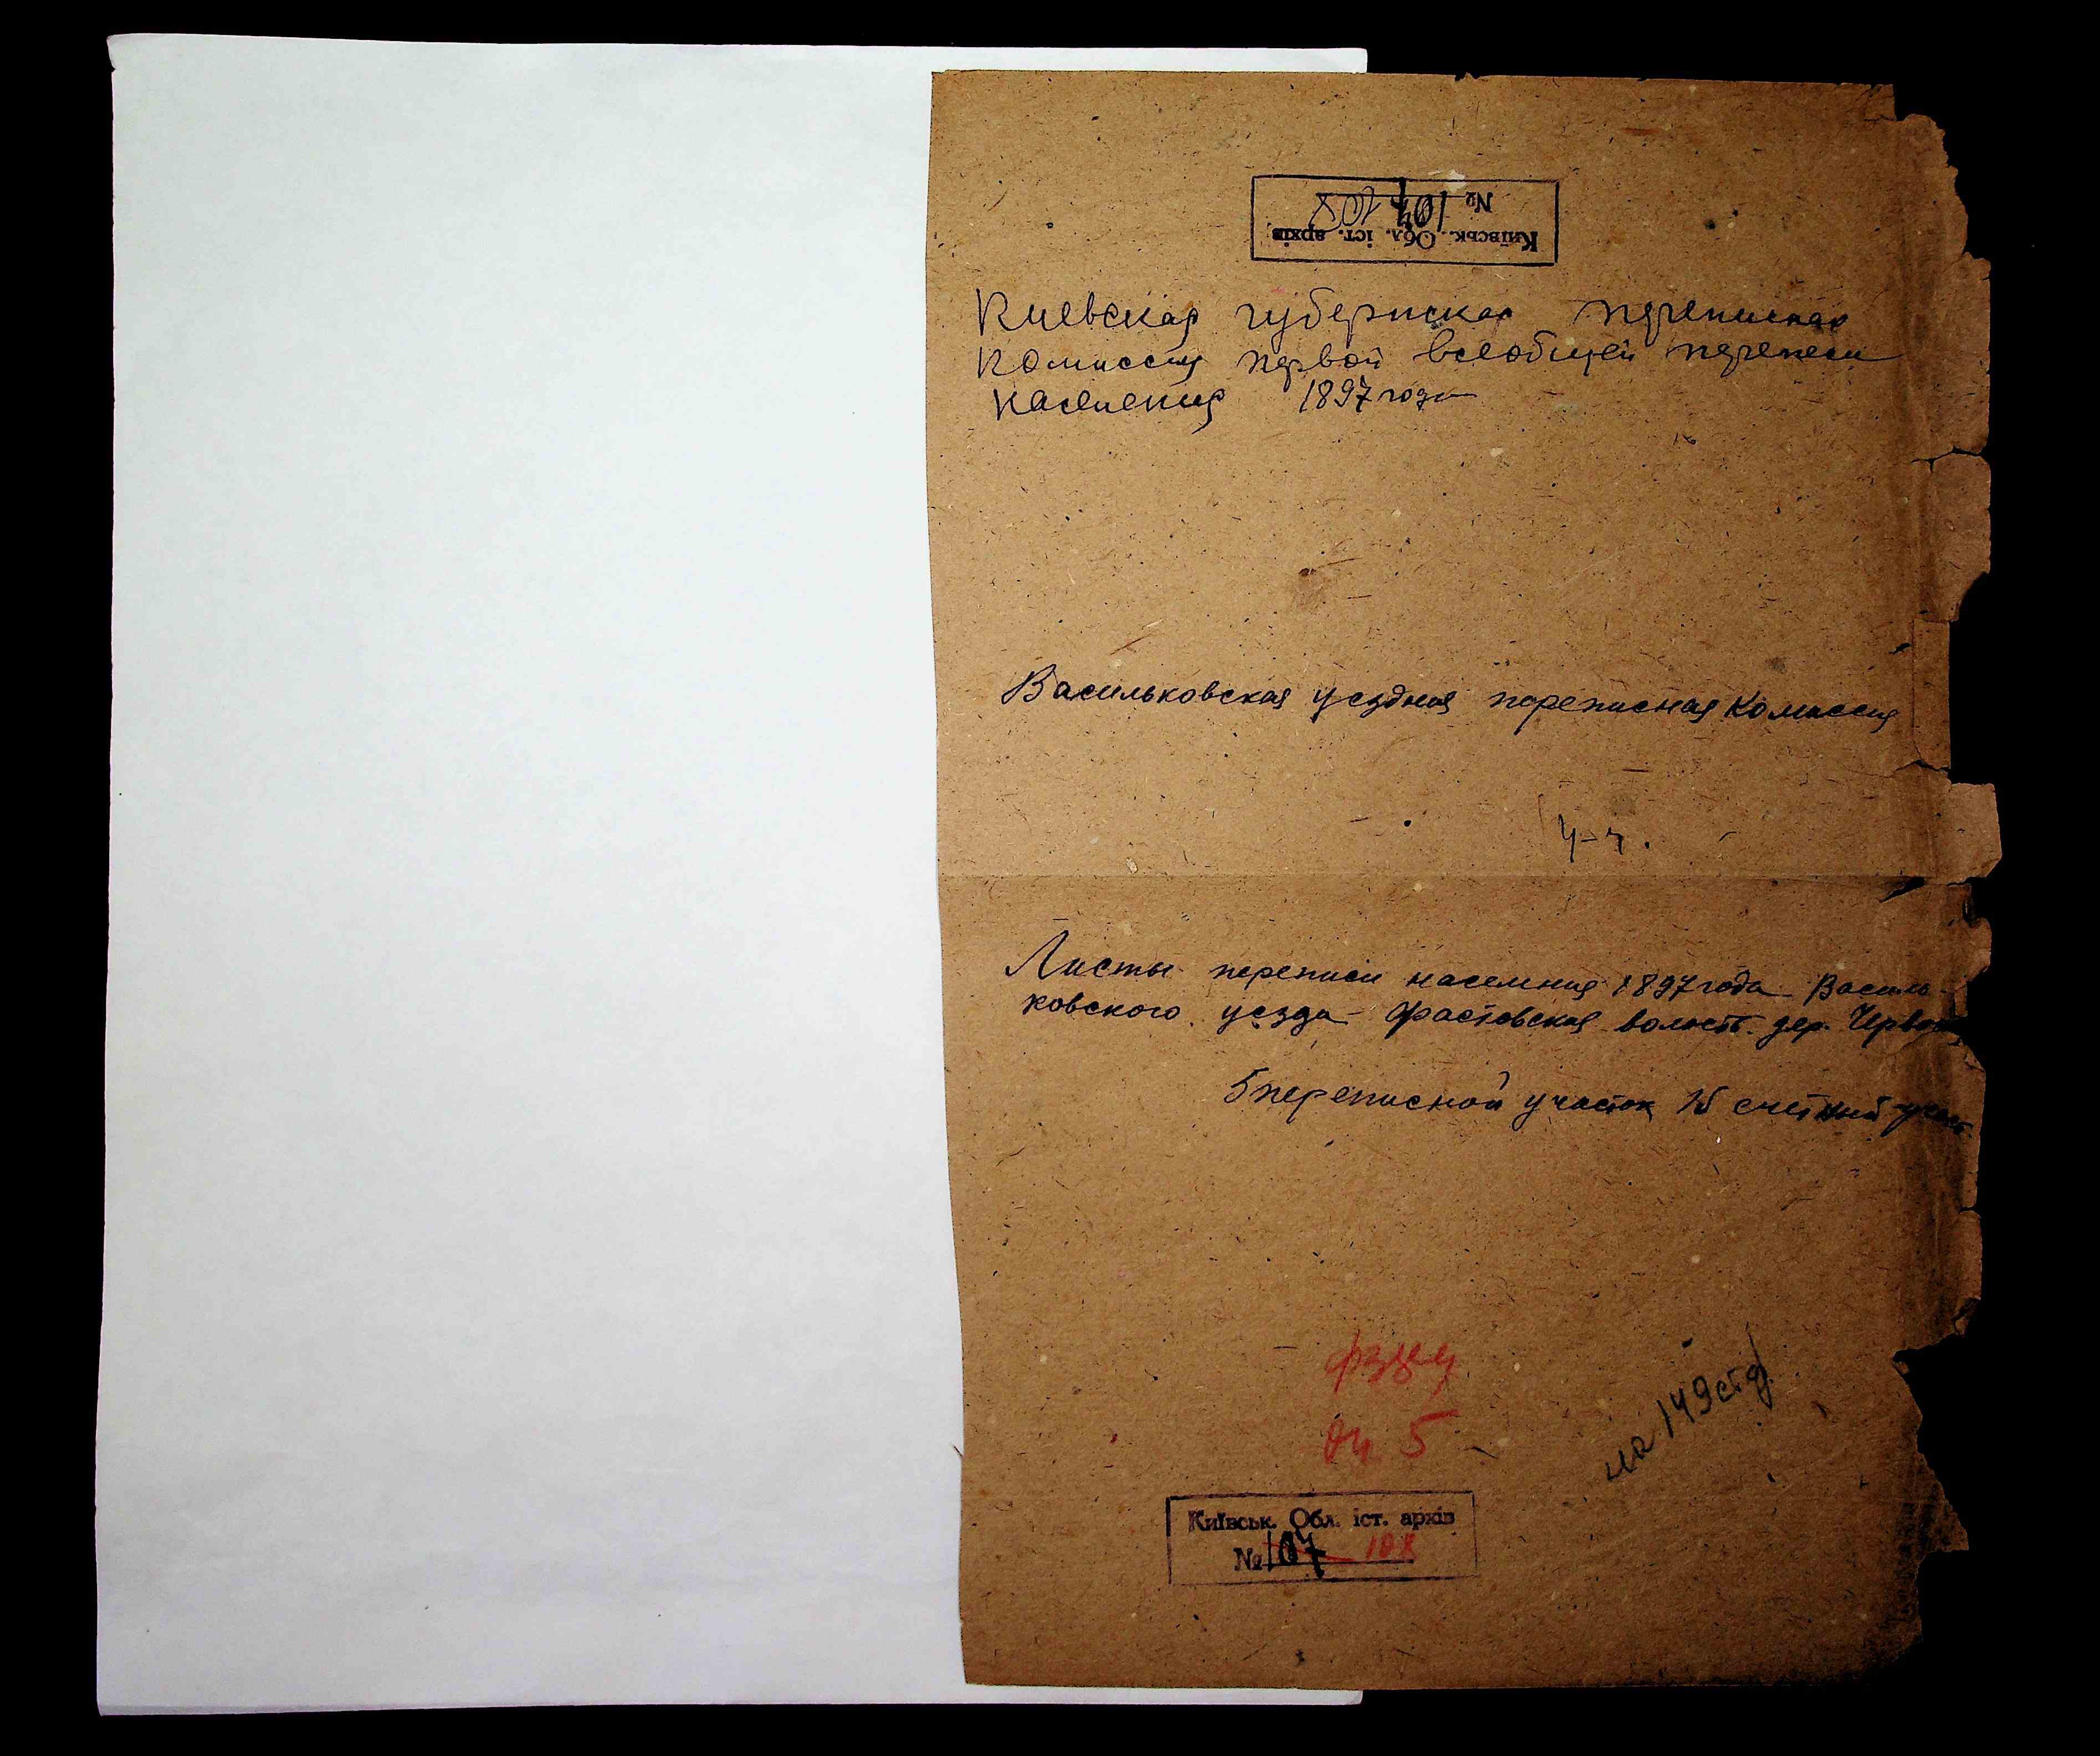 Київськ. Обл. іст. архів
№ 107 108
Киевская губернская переписная
комиссия первой всеобщей переписи
населения 1897 года
Васильковская уездная переписная комиссия
Листы переписи населения 1897 года Василь-
ковского уезда Фастовская волость дер.
5 переписной участок 15 счетный
на 149 стр
Київськ. Обл. іст. архів
№ 107 108